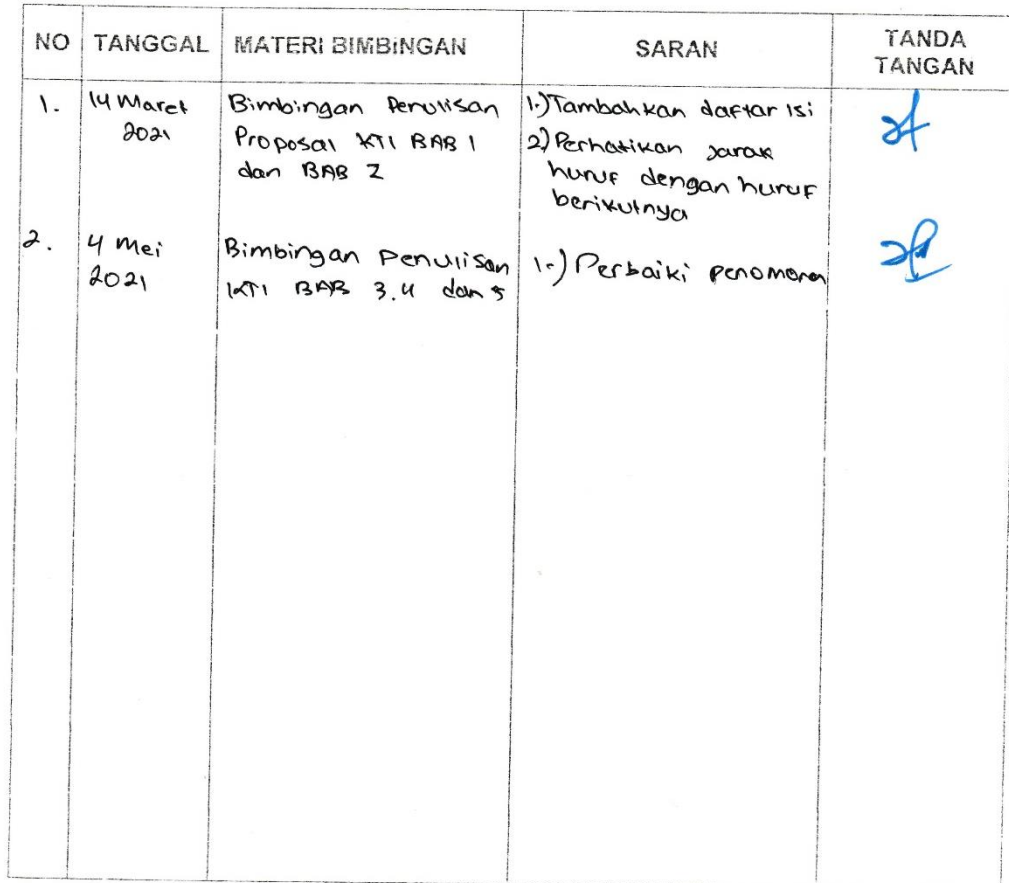 NO TANGGAL MATERI BIMBINGAN SARAN TANDA TANGAN
1. 14 Maret 2021
Bimbingan Penulisan
Proposal KTI BAB 1
dan BAB 2
1.) Tambahkan daftar isi
2) Perhatikan jarak
huruf dengan huruf
berikutnya
2. 4 Mei 2021
Bimbingan Penulisan
KTI BAB 3.4 dan 5
1.) Perbaiki penomoran